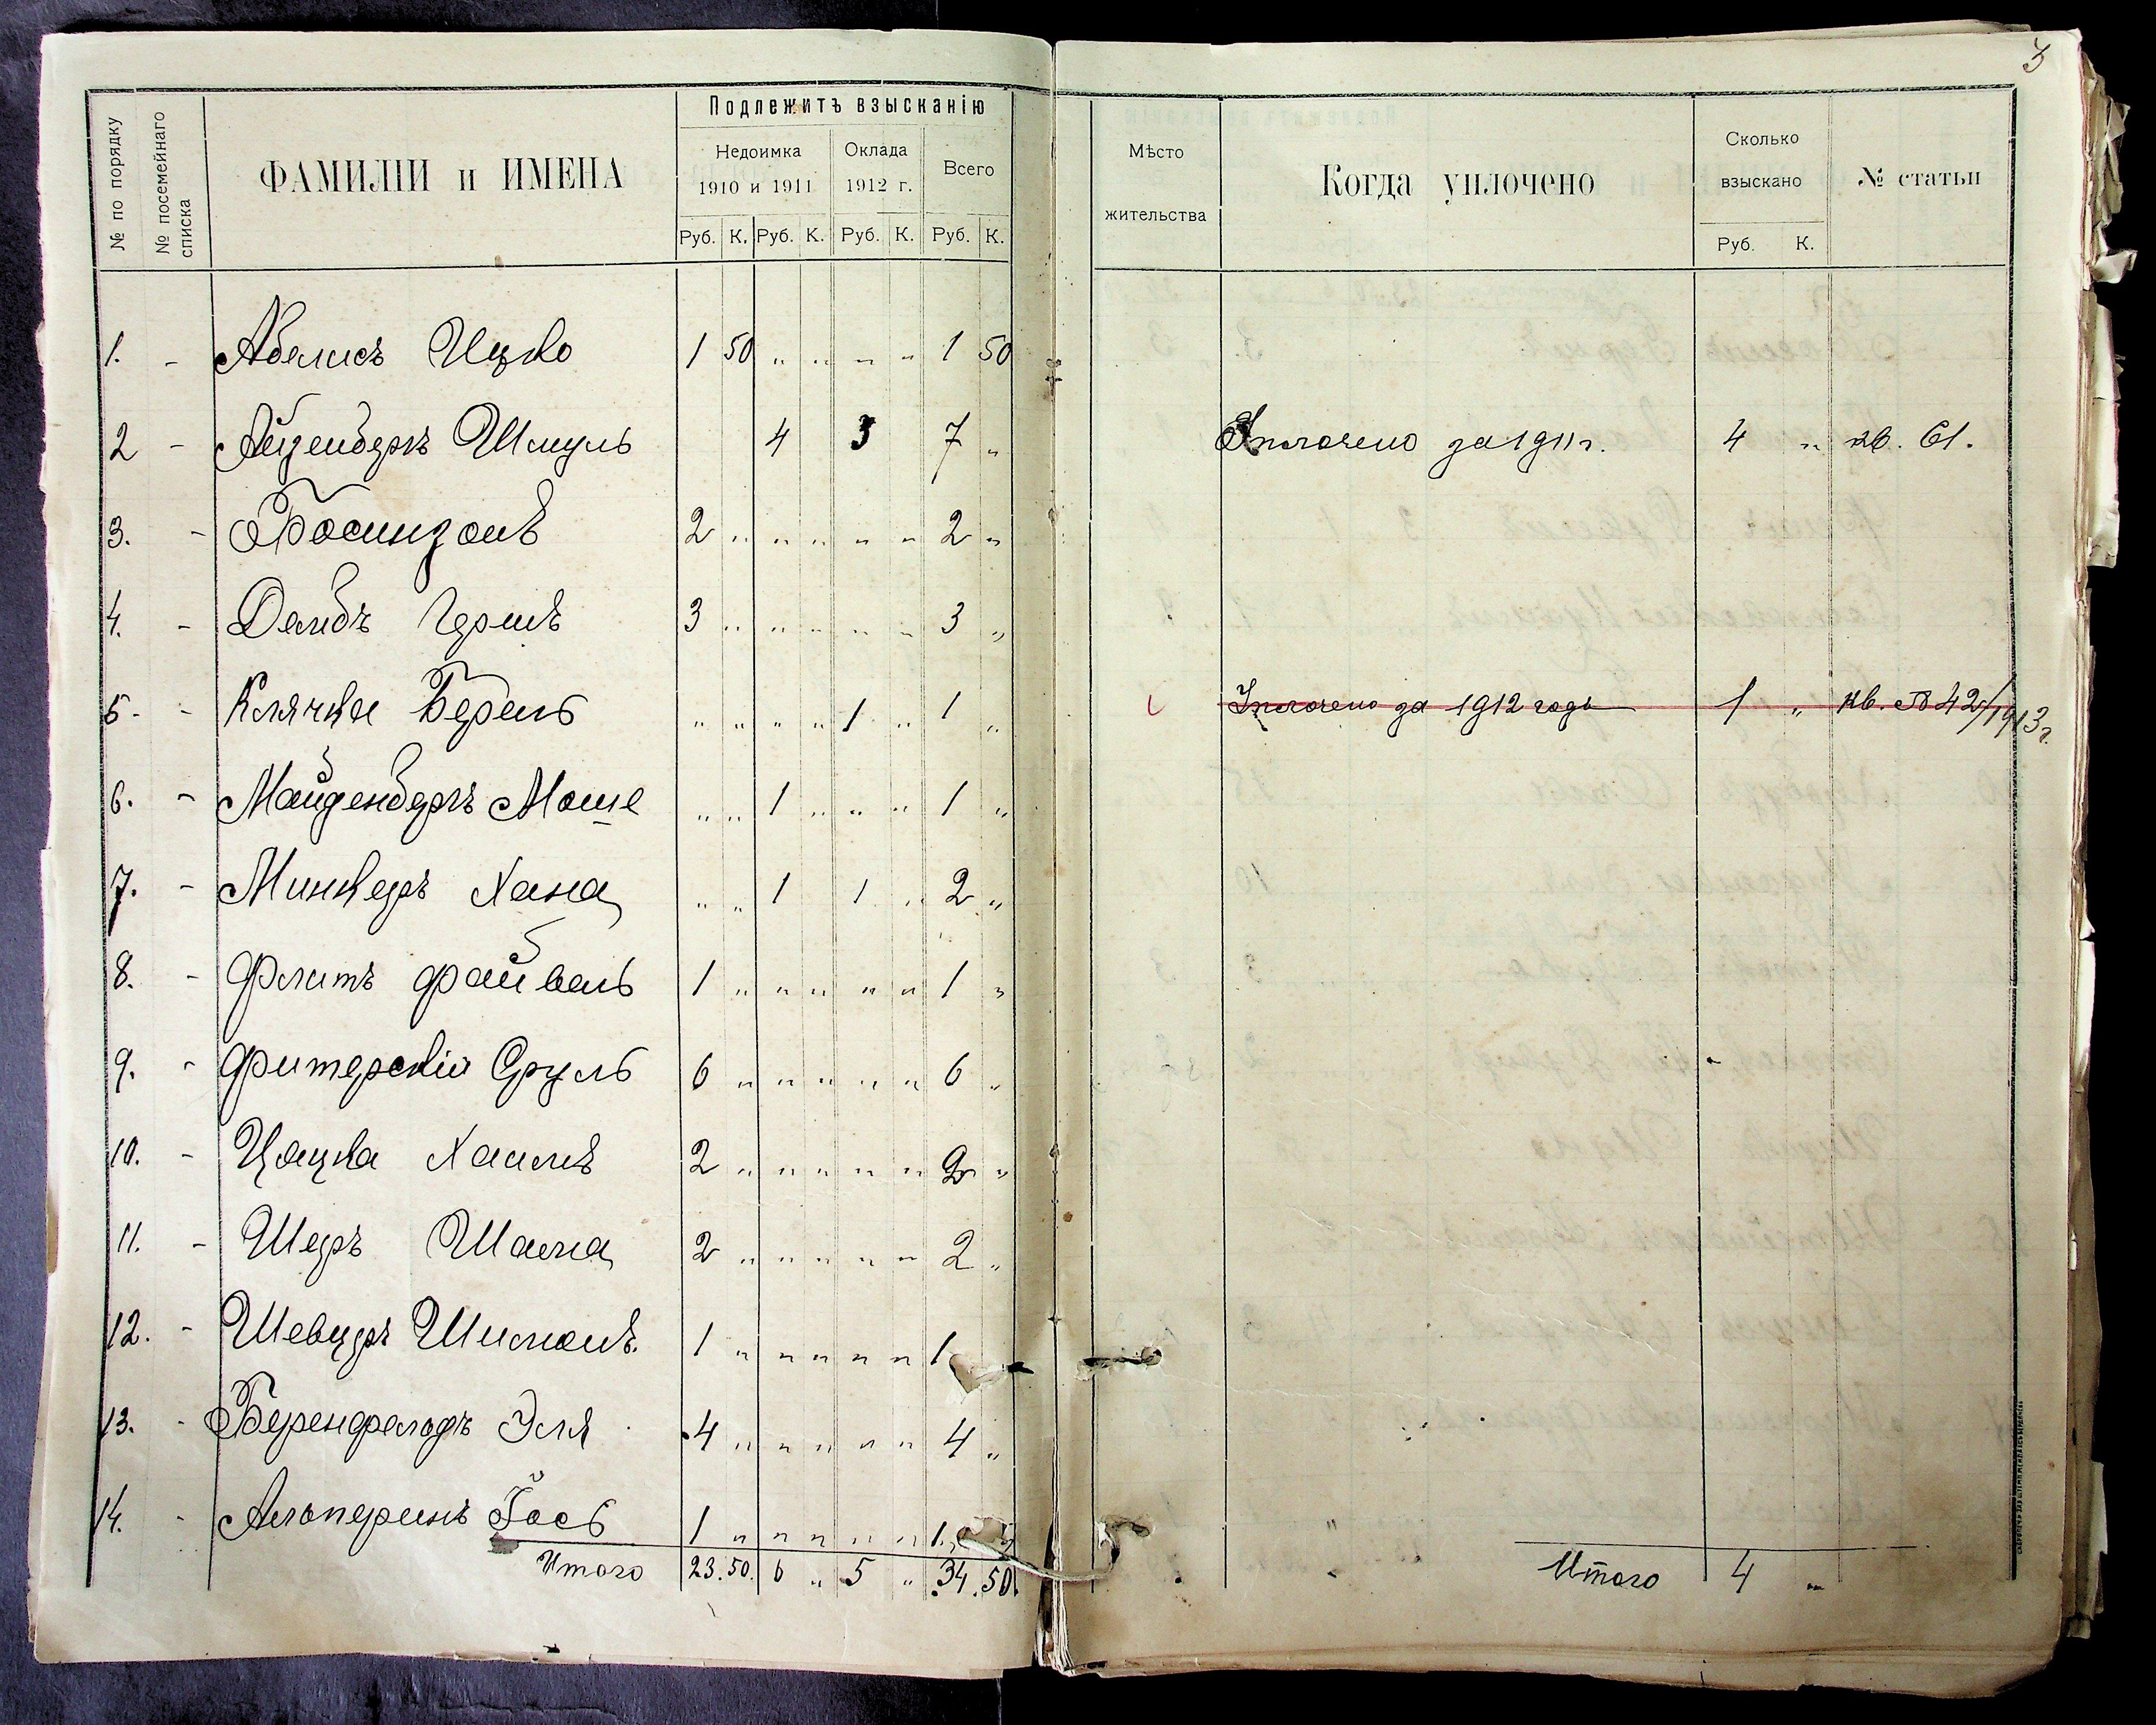 3
№ по порядку
№ посемейнаго списка
ФАМИЛІИ и ИМЕНА
Подлежитъ взысканію
Недоимка 1910 и 1911
Оклада 1912 г.
Всего
Руб. К. Руб. К. Руб. К. Руб. К.
Мѣсто жительства
Когда уплочено
Сколько взыскано
Руб. К.
№ статьи
1. - Абелисъ Ицко 1 50 " " " " 1 50
2 - Айзенбергъ Шмуль 4 3 7 " Уплочено за 1911 г. 4 " кв. 61.
3. - 2 " " " " " 2 "
4. - Дамбъ Гершъ 3 " " " " " 3 "
5. - Клячке Берель " " " " 1 " 1 " Уплочено за 1912 годъ 1 " кв. № 42/1913 г.
6. - Майденбергъ Моше " " 1 " " " 1 "
7. - Минкеръ Хана " " 1 1 " 2 "
8. - Флитъ Файвель 1 " " " " " 1 "
9. - Фитерскій Сруль 6 " " " " " 6 "
10. - Цацка Хаимъ 2 " " " " " 2 "
11. - Шеръ Шама 2 " " " " " 2 "
12. - Шевцъ Шимонъ. 1 " " " " " 1
13. - Беренфельдъ Эля 4 " " " " " 4 "
14. - Альперинъ Іось 1 " " " " " 1
Итого 23.50. 6 " 5 " 34.50. Итого 4 "